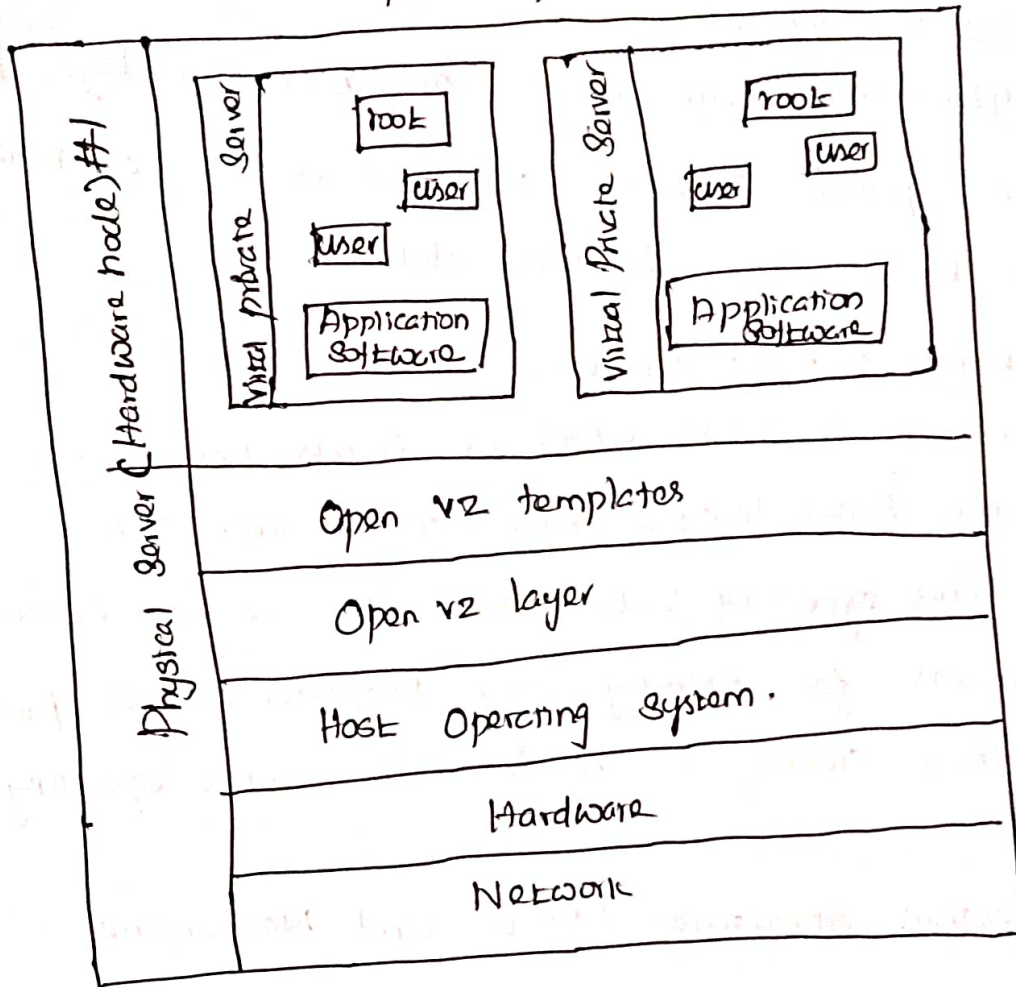 Physical Server (Hardware node) #1
Virtual private Server
root
user
user
Application
Software
Virtual Private Server
root
user
user
Application
Software
Open VZ templates
Open VZ layer
Host Operating System.
Hardware
Network